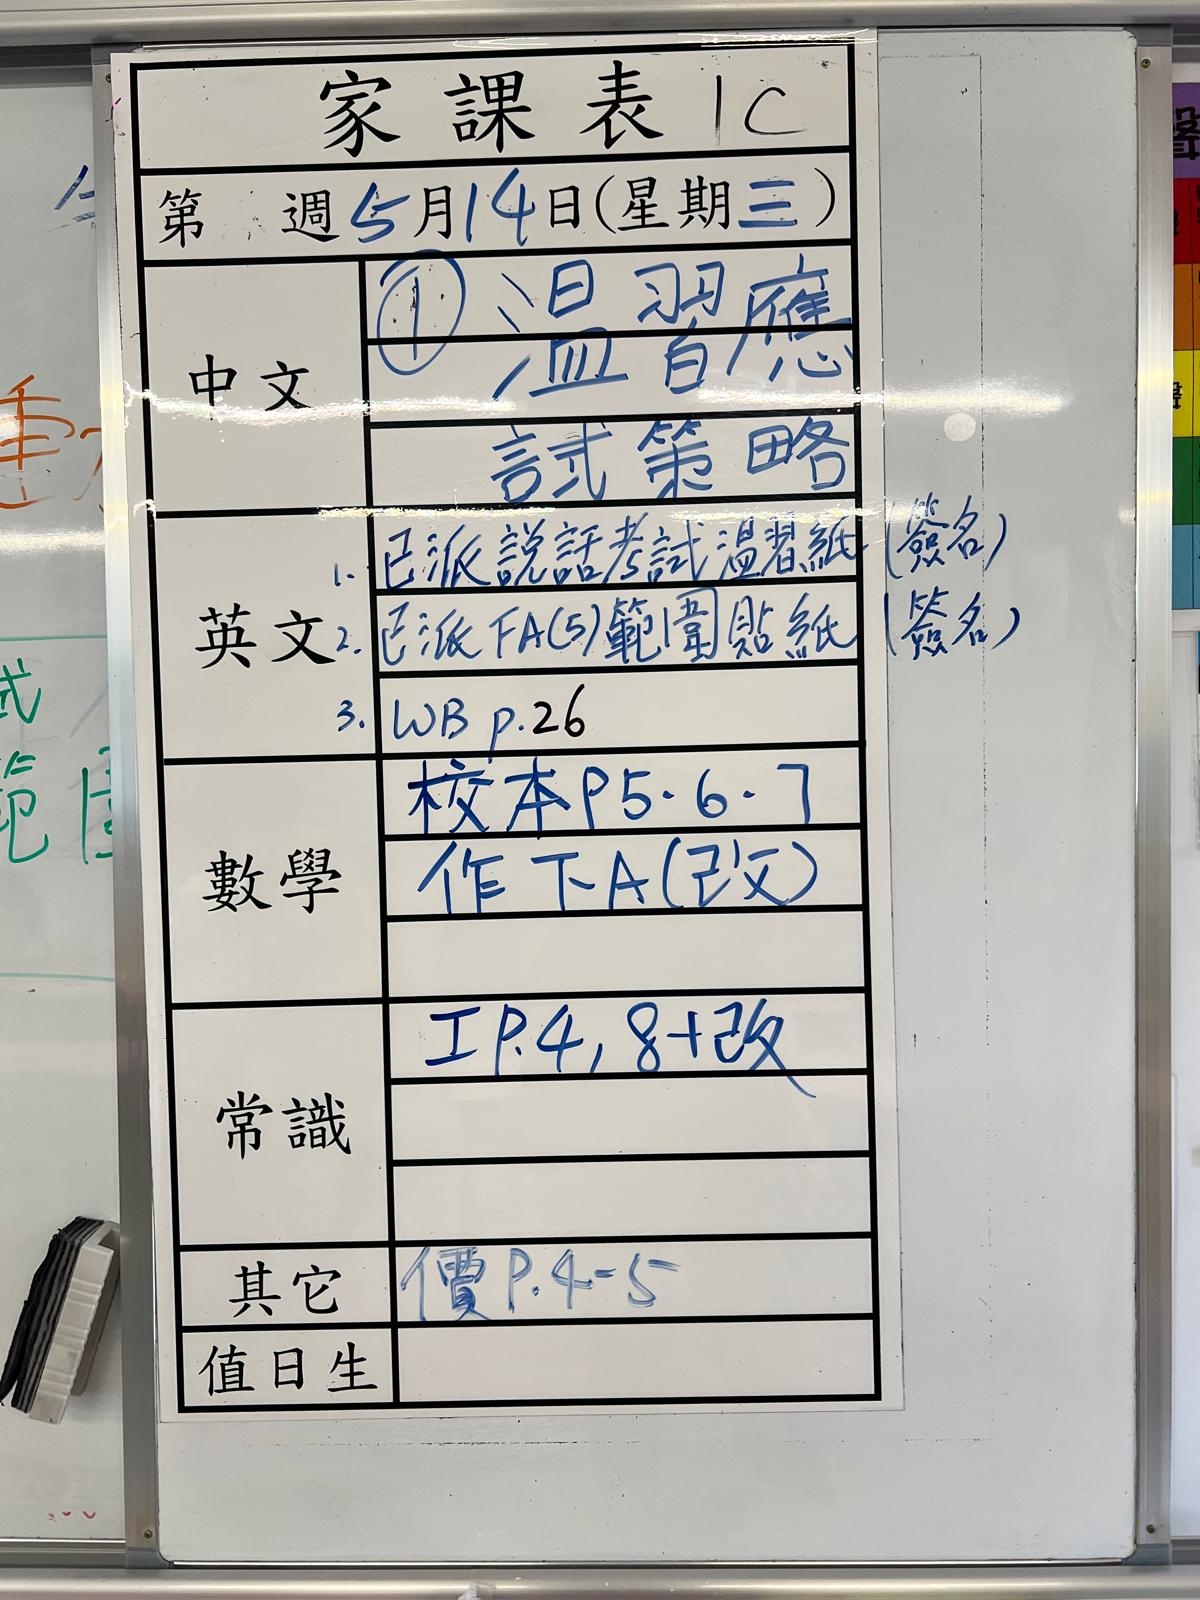 家課表 1C
第 週 5月14日(星期三)
中文
① 溫習應
試策略
英文
1. 已派說話考試溫習紙 (簽名)
2. 已派 FA(5)範圍貼紙 (簽名)
3. WB p.26
數學
校本P5.6.7
作下A(改)
常識
工P.4,8+改
其它
價P.4-5
值日生
試
範圍